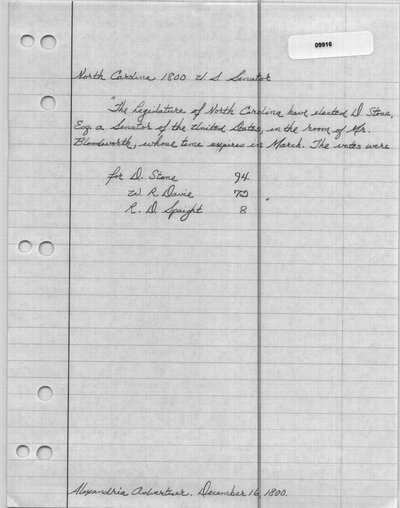 09916
North Carolina 1800 U.S. Senator
"The Legislature of North Carolina have elected D. Stone,
Esq. a Senator of the United States, in the room of Mr.
Bloodworth, whose time expires in March. The votes were
for D. Stone 94
W. R. Davie 72
R. D. Spaight 8 "
Alexandria Advertiser. December 16, 1800.